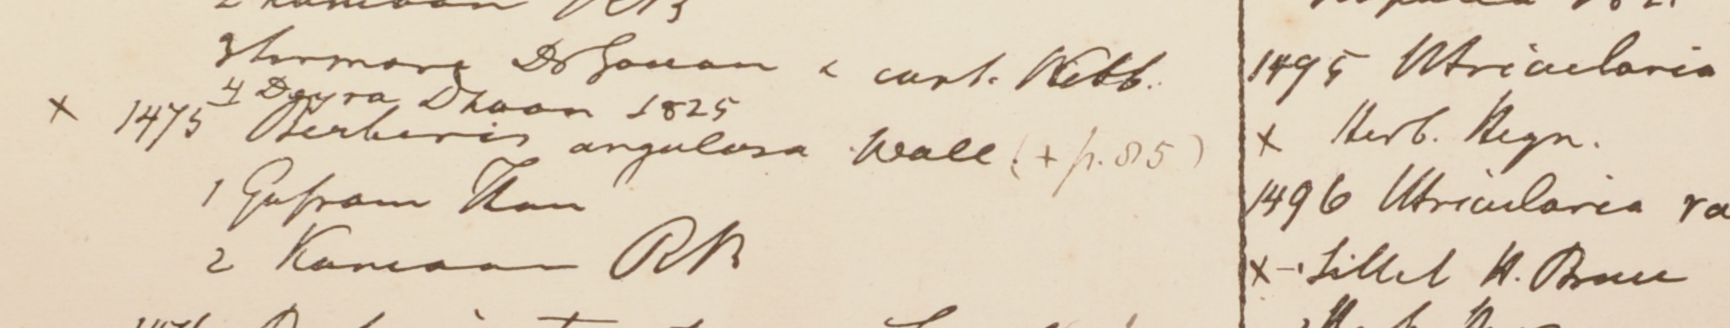 2 Kamaon RB
3 Sirmore Dr Govan & cart. Webb.
4 Deyra Dhoon 1825
x 1475 Berberis angulosa Wall. (+ p. 85)
1 Gosram Than
2 Kamaon RB
1495 Utricularia
x Herb. Heyn.
1496 Utricularia ra
x - Sillet H. Bruce